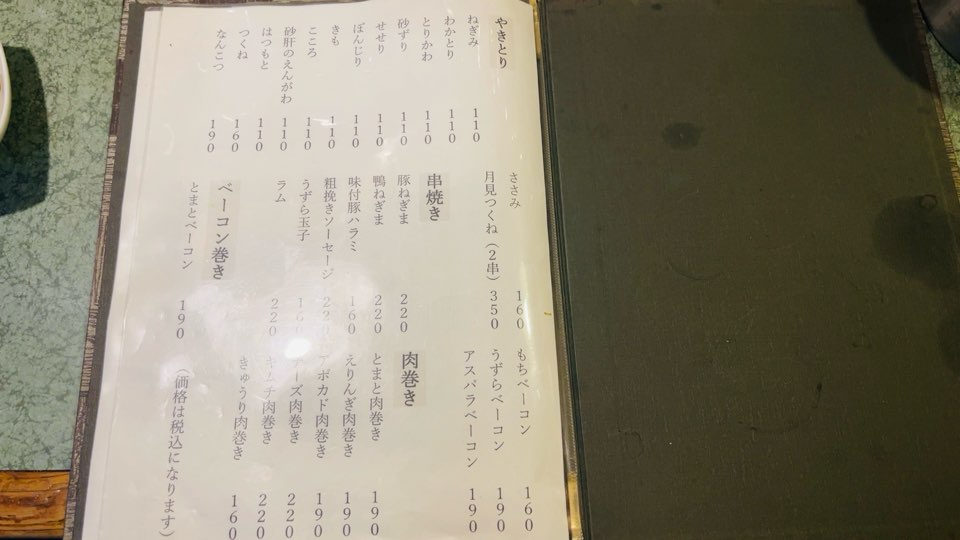 やきとり
ねぎみ 110
わかとり 110
とりかわ 110
砂ずり 110
せせり 110
ぼんじり 110
きも 110
こころ 110
砂肝のえんがわ 110
はつもと 110
つくね 160
なんこつ 190
ささみ 160
月見つくね(2串) 350
串焼き
豚ねぎま 220
鴨ねぎま 220
味付豚ハラミ 160
粗挽きソーセージ 220
うずら玉子 160
ラム 220
ベーコン巻き
とまとベーコン 190
もちベーコン 160
うずらベーコン 190
アスパラベーコン 190
肉巻き
とまと肉巻き 190
えりんぎ肉巻き 190
アボカド肉巻き 190
チーズ肉巻き 220
キムチ肉巻き 220
きゅうり肉巻き 160
(価格は税込になります)